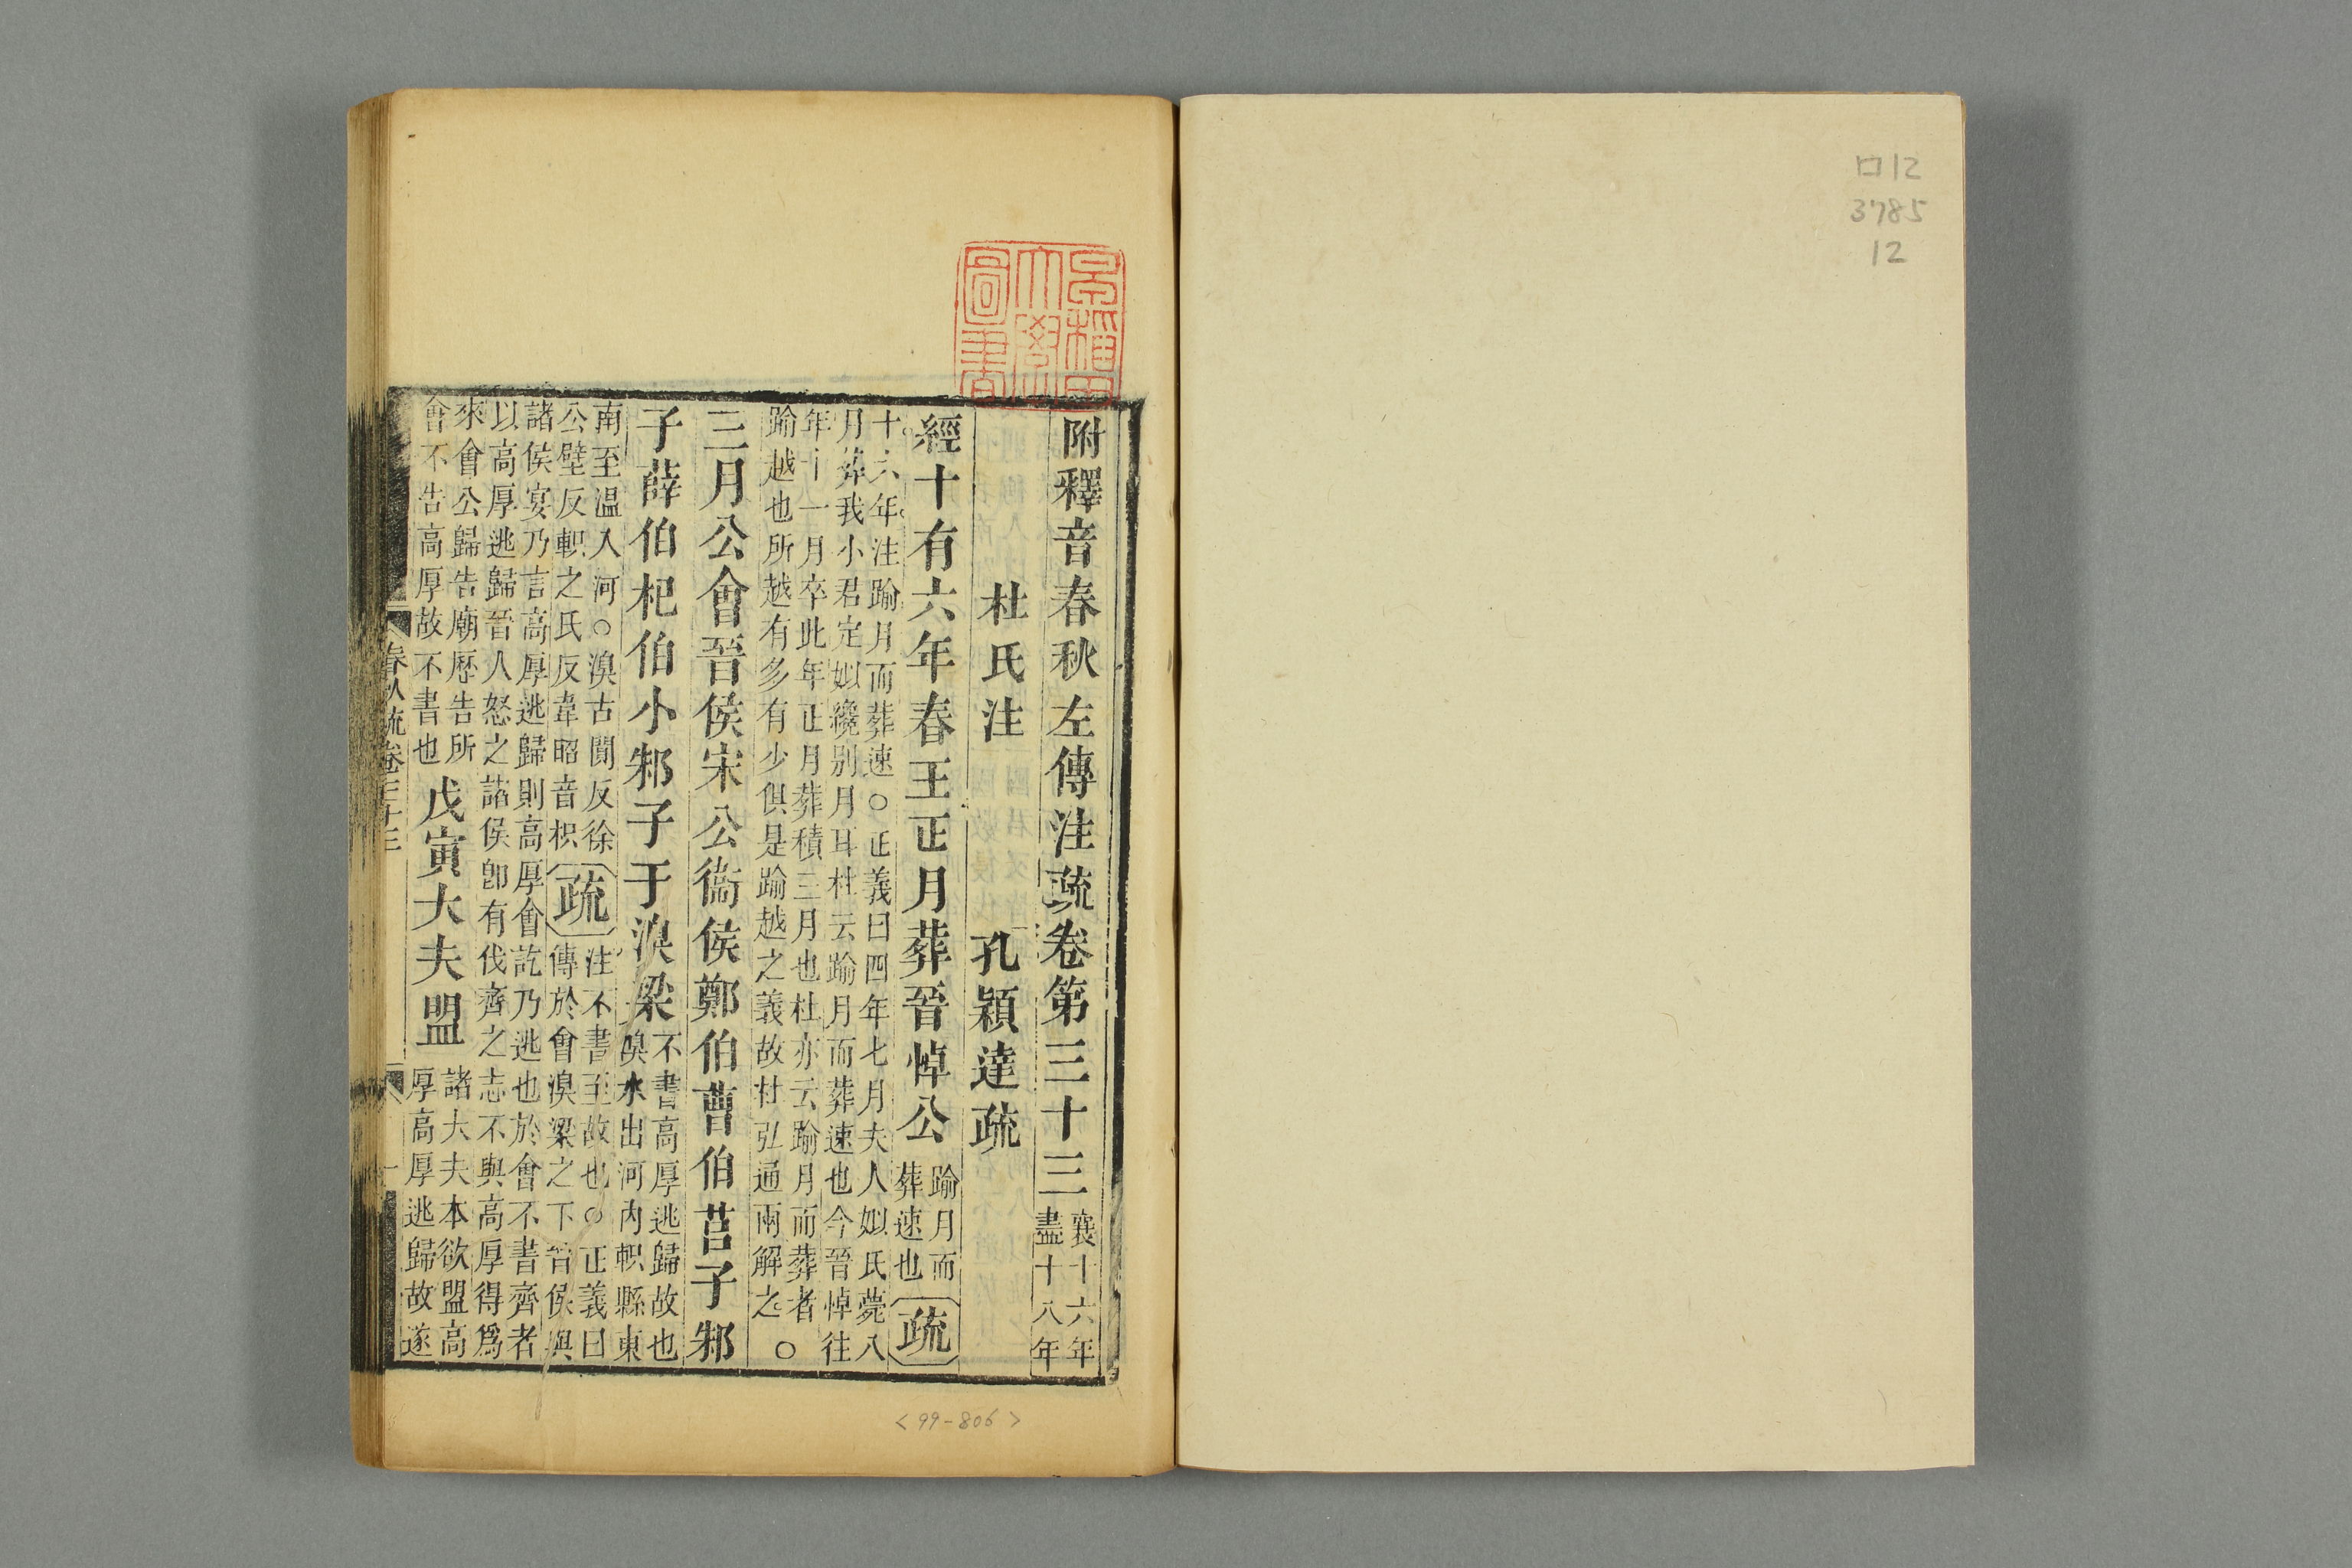 口12
3785
12
早稲田大學圖書
附釋音春秋左傳注疏卷第三十三 襄十六年盡十八年
杜氏注 孔穎達疏
經十有六年春王正月葬晉悼公 踰月而葬速也 疏
十六年注踰月而葬速○正義曰四年七月夫人姒氏薨八
月葬我小君定姒纔別月耳杜云踰月而葬速也今晉悼往
年十一月卒此年正月葬積三月也杜亦云踰月而葬者
踰越也所越有多有少俱是踰越之義故杜弘通兩解之 ○
三月公會晉侯宋公衞侯鄭伯曹伯莒子邾
子薛伯杞伯小邾子于溴梁 不書高厚逃歸故也溴水出河內軹縣東
南至溫入河○溴古闃反徐公壁反軹之氏反韋昭音枳 疏 注不書至故也○正義曰傳於會溴梁之下晉侯與
諸侯宴乃言高厚逃歸則高厚會訖乃逃也於會不書齊者
以高厚逃歸晉人怒之諸侯卽有伐齊之志不與高厚得爲
來會公歸告廟歷告所會不告高厚故不書也 戊寅大夫盟 諸大夫本欲盟高厚高厚逃歸故遂
春秋疏卷三十三 一
<99-806>